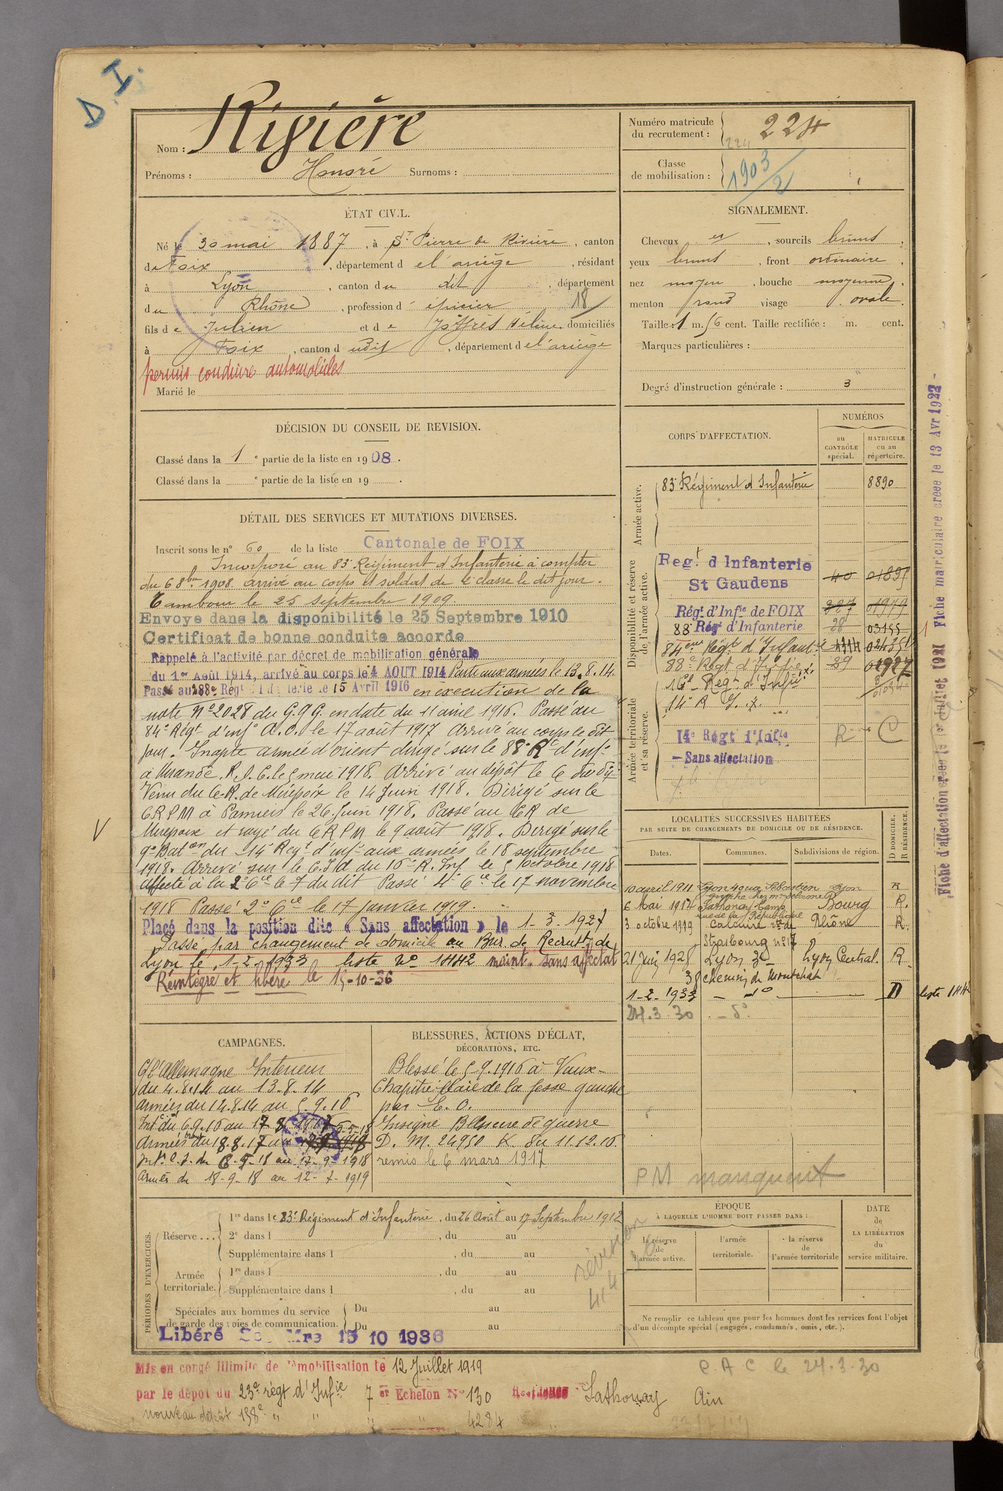 D. I.
Nom : Rivière
Prénoms : Honoré Surnoms :
Numéro matricule
du recrutement : 224
Classe
de mobilisation : 1903/2
ÉTAT CIVIL.
Né le 30 mai 1887, à St Pierre de Rivière, canton
de Foix, département de l'ariège, résidant
à Lyon, canton du dit, département
du Rhône, profession d'épicier 18
fils de Julien et de Joffrès Hélène, domiciliés
à Foix, canton dudit, département de l'ariège
permis conduire automobiles
Marié le
SIGNALEMENT.
Cheveux et, sourcils bruns,
yeux bruns, front ordinaire,
nez moyen, bouche moyenne,
menton rond visage ovale.
Taille : 1 m. 56 cent. Taille rectifiée : m. cent.
Marques particulières :
Degré d'instruction générale : 3
DÉCISION DU CONSEIL DE REVISION.
Classé dans la 1e partie de la liste en 1908.
Classé dans la e partie de la liste en 19 .
DÉTAIL DES SERVICES ET MUTATIONS DIVERSES.
Inscrit sous le n° 60 de la liste Cantonale de FOIX
Incorporé au 83e Régiment d'Infanterie à compter
du 6 8bre 1908. arrivé au corps et soldat de 2e classe le dit jour.
Tambour le 25 septembre 1909
Envoyé dans la disponibilité le 25 Septembre 1910
Certificat de bonne conduite accordé
Rappelé à l'activité par décret de mobilisation générale
du 1er Août 1914, arrivé au corps le 4 AOUT 1914 Parti aux armées le 13.8.14.
Passé au 88e Régt Infanterie le 15 Avril 1916 en exécution de la
note N° 2028 du G.Q.G. en date du 11 avril 1916. Passé au
84e Régt d'infie A.O. le 17 août 1917 Arrivé au corps le dit
jour. Inapte armée d'orient dirigé sur le 88e R. d'infie
à Mirande. le 5 mai 1918. Arrivé au dépôt le 6 du dit
Venu du de Mirepoix le 14 Juin 1918. Dirigé sur le
C R P M à Pamiers le 26 Juin 1918. Passé au de
Mirepoix et rayé du C R P M le 9 août 1918. Dirigé sur le
9e Baton du 14e Régt d'infie aux armées le 18 septembre
1918. Arrivé sur le du 16e R. Inf. le 5 octobre 1918
affecté à la 2e Cie le 7 du dit Passé 4e Cie le 17 novembre
1918 Passé 2e Cie le 17 janvier 1919.
Placé dans la position dite « Sans affectation » le 1-3-1927
Passé par changement de domicile au Bur. de Recrutt de
Lyon le 1-2-1933 liste N° 1442 maint. sans affectat
Réintégré et libéré le 15-10-36
CORPS D'AFFECTATION.
NUMÉROS
au
CONTRÔLE
spécial.
MATRICULE
ou au
répertoire.
Armée active.
83e Régiment d'Infanterie 8890
Disponibilité et réserve
de l'armée active.
Regt d Infanterie
St Gaudens 40 01895
Régt d'Infie de FOIX 327 01979
88e Régt d'Infanterie 28 03155
84eme Régt d'Infantie
88e Régt d'Infie 89
16e Régt d'Infie
14e R I. 7.
Armée territoriale
et sa réserve.
14e Régt d'Infie
Sans affectation
R C
LOCALITÉS SUCCESSIVES HABITÉES
PAR SUITE DE CHANGEMENTS DE DOMICILE OU DE RÉSIDENCE.
Dates. Communes. Subdivisions de région. D DOMICILE. R RÉSIDENCE.
10 avril 1911 Lyon Lyon R
6 mai 1914 Sathonay Camp Bourg R.
3 octobre 1919 rue de la République Caluire Rhône R
Strasbourg n° 17
21 Juin 1928 Lyon 3e Lyon Central. R
38 chemin de Montchat
1-2-1933 - do D liste 1442
24.3.30 - do
CAMPAGNES.
C/ l'allemagne Intérieur
du 4.8.14 au 13.8.14
armées du 14.8.14 au 5.9.16
Int. du 6.9.16 au 17.8.17
Armées du 18.8.17 au 5.5.18
Int. du 6-5-18 au 17-9-1918
armées du 18-9-18 au 12-7-1919
BLESSURES, ACTIONS D'ÉCLAT,
DÉCORATIONS, ETC.
Blessé le 5.9.1916 à Vaux-
Chapitre plaie de la fesse gauche
par E. O.
Insigne Blessure de guerre
D. M. 24950 K du 11.12.16
remis le 6 mars 1917
PM manquent
PÉRIODES D'EXERCICES.
Réserve... 1re dans le 83e Régiment d'Infanterie, du 26 Août au 17 Septembre 1912
2e dans l , du au
Supplémentaire dans l , du au
Armée
territoriale. 1re dans l , du au
Supplémentaire dans l , du au
Spéciales aux hommes du service
de garde des voies de communication. Du au
Du au
Libéré 15 10 1936
révision
414
ÉPOQUE
À LAQUELLE L'HOMME DOIT PASSER DANS :
la réserve
de
l'armée active.
l'armée
territoriale.
la réserve
de
l'armée territoriale
DATE
de
LA LIBÉRATION
du
service militaire.
Ne remplir ce tableau que pour les hommes dont les services font l'objet
d'un décompte spécial (engagés, condamnés, omis, etc.).
C A C le 24-3-30
Mis en congé illimité de démobilisation le 12 Juillet 1919
par le dépôt du 23e régt d'Infie 7er Echelon N° 130 Résidence Sathonay Ain
nouveau dépôt 158e " " " 4284
Fiche d'affectation créée le Juillet 1921 Fiche matriculaire créée le 13 Avr 1922